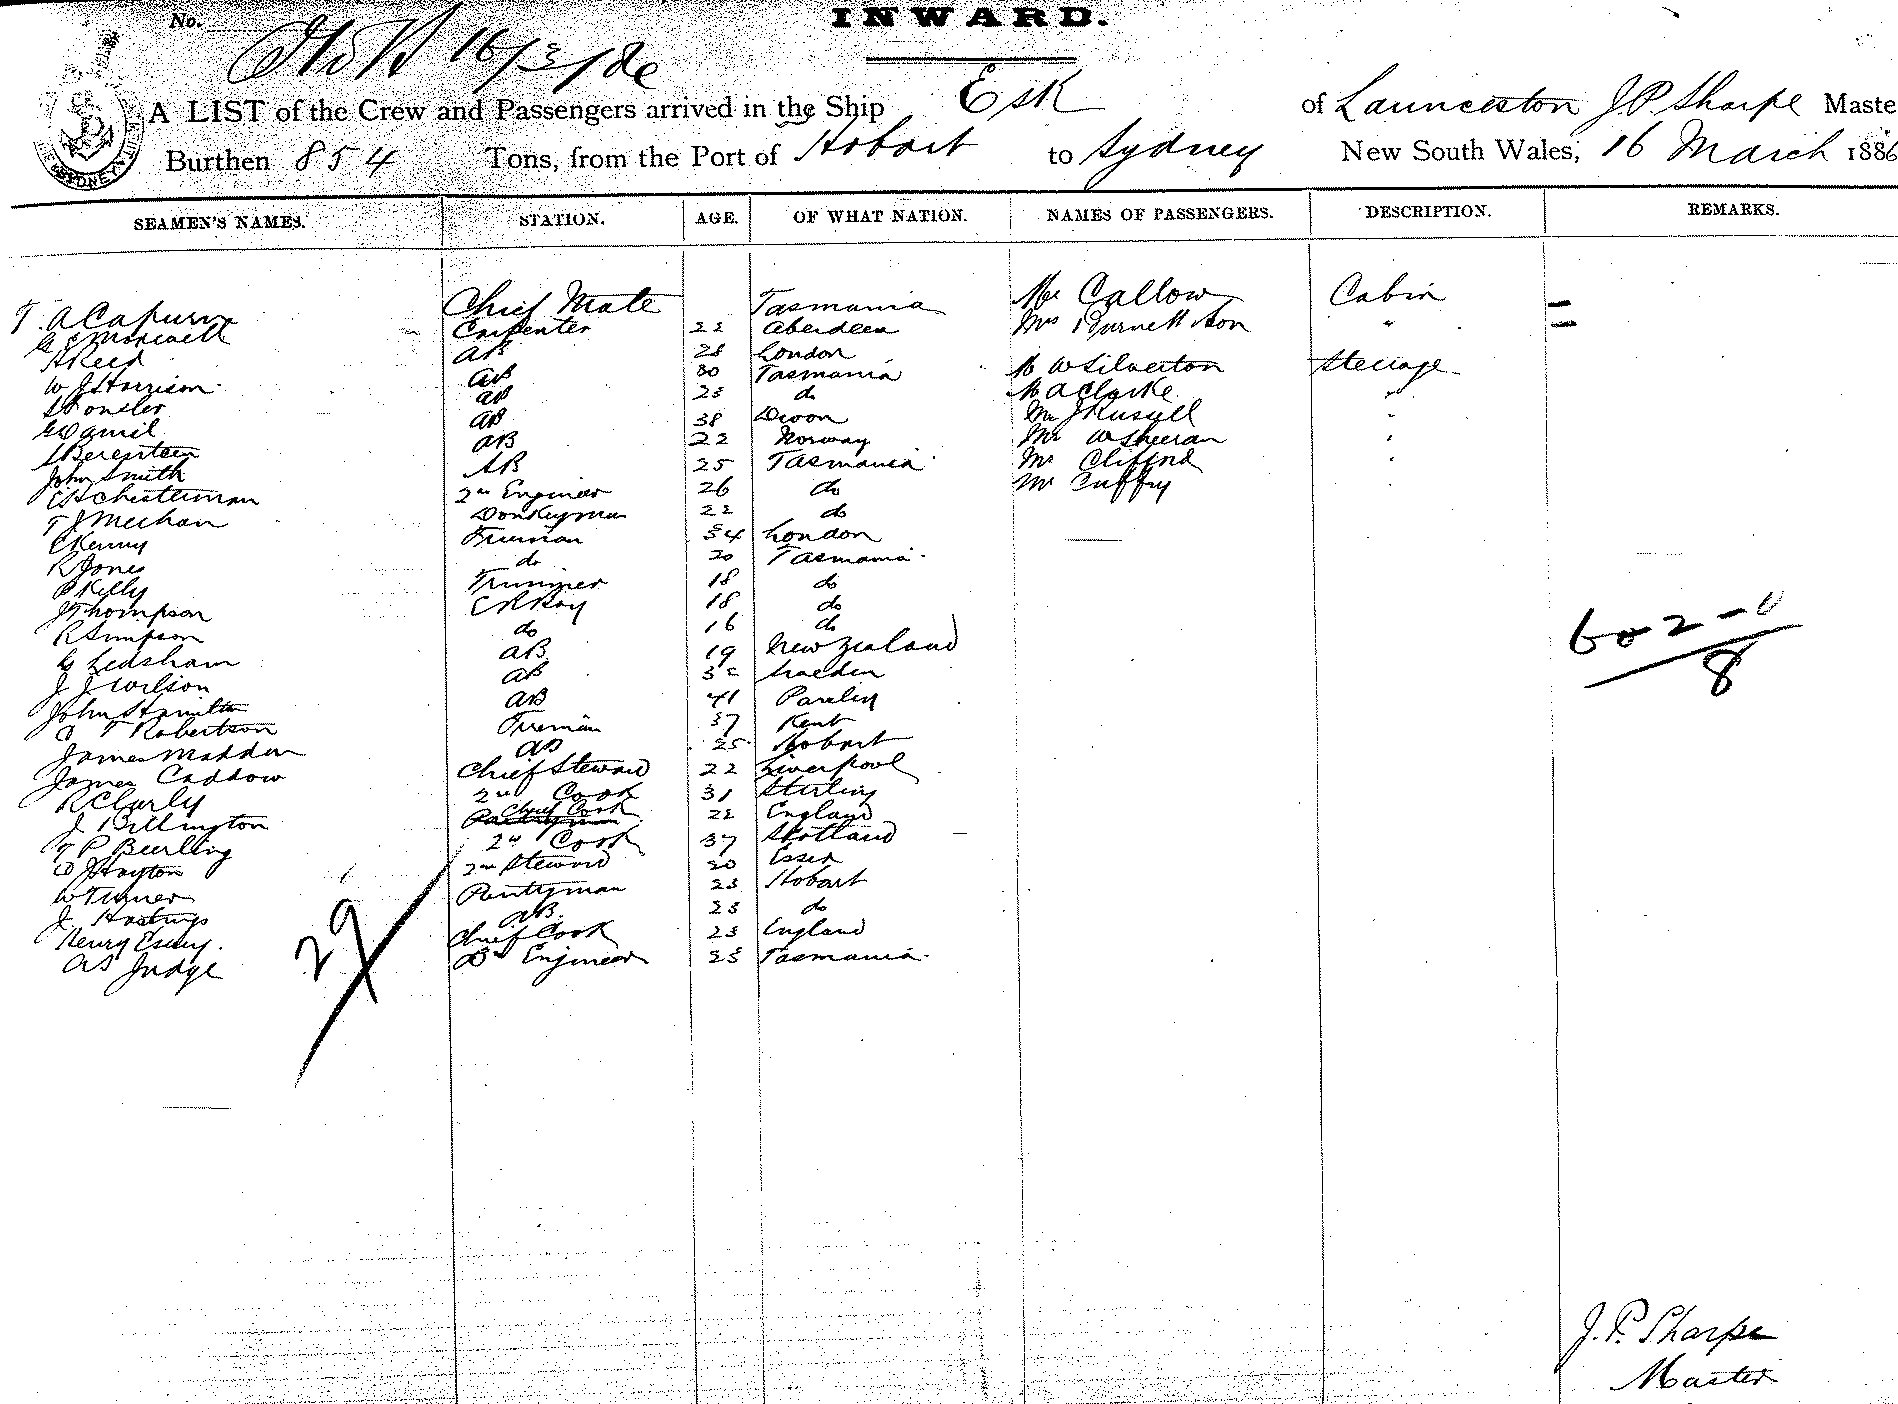 No.
INWARD.
16/3/86
A LIST of the Crew and Passengers arrived in the Ship Esk of Launceston J.P. Sharpe Maste
Burthen 854 Tons, from the Port of Hobart to Sydney New South Wales, 16 March 1886
SEAMEN'S NAMES. STATION. AGE. OF WHAT NATION. NAMES OF PASSENGERS. DESCRIPTION. REMARKS.
T. A Capurn Chief Mate Tasmania Mr Callow Cabin
Maxwell Carpenter 22 Aberdeen Mrs Burnett & son "
A Reed AB 28 London
W J Harrison AB 30 Tasmania M W Silverton Steerage
AB 23 do M A Clarke "
G Daniel AB 38 Devon Mr J Russell "
J Berenteen AB 22 Norway Mr W Sheeran "
John Smith AB 25 Tasmania Mr Clifford "
2nd Engineer 26 do Mr Cuffey "
T J Meehan Donkeyman 22 do
C Kenny Fireman 34 London
R Jones do 20 Tasmania
P Kelly Trimmer 18 do
J Thompson 18 do
R Simpson do 16 do
G Ledsham AB 19 New Zealand
J J Wilson AB
John Hamilton AB 41
T Robertson Fireman 37 Kent
James Madden AB 25 Hobart
James Caddow Chief Steward 22 Liverpool
R Clurly 2nd Cook 31 Sterling
J Billington Pantryman Chief Cook 22 England
T P Beurling 2nd Cook 37 Scotland
D J Hayton 2nd Steward 20 Essex
W Turner Pantryman 23 Hobart
J Hastings AB 23 do
Henry Chief Cook 23 England
A S Judge Engineer 23 Tasmania
29
602-0
8
J. P. Sharpe
Master